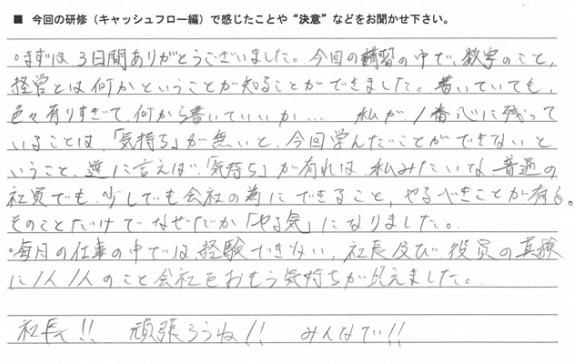 ■ 今回の研修（キャッシュフロー編）で感じたことや“決意”などをお聞かせ下さい。
・まずは、3日間ありがとうございました。今回の講習の中で、数字のこと、
経営とは何かということが知ることができました。書いていても、
色々有りすぎて、何から書いていいか… 私が1番心に残って
いることは、「気持ち」が無いと、今回学んだことができないと
いうこと、逆に言えば、「気持ち」が有れば、私みたいな普通の
社員でも、少しでも会社の為にできること、やるべきことが有る。
そのことだけで、なぜだか「やる気」になりました。
・毎月の仕事の中では経験できない、社長及び役員の真摯
に1人1人のこと会社をおもう気持ちが見えました。
社長!! 頑張ろうね!! みんなで!!